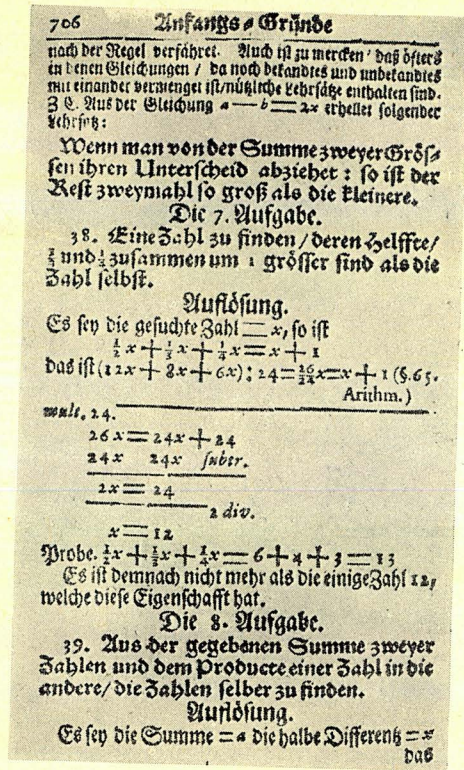 706 Anfangs-Gründe
nach der Regel verfähret. Auch ist zu mercken / daß öfters
in denen Gleichungen / da noch bekandtes und unbekandtes
mit einander vermenget ist/nützliche Lehrsätze enthalten sind.
Z E. Aus der Gleichung a — b = 2x erhellet folgender
Lehrsatz:
Wenn man von der Summe zweyer Grös-
sen ihren Unterscheid abziehet: so ist der
Rest zweymahl so groß als die kleinere.
Die 7. Aufgabe.
38. Eine Zahl zu finden / deren Helffte/
⅓ und ¼ zusammen um 1 grösser sind als die
Zahl selbst.
Auflösung.
Es sey die gesuchte Zahl = x, so ist
½x + ⅓x + ¼x = x + 1
das ist (12x + 8x + 6x) : 24 = 26/24 x = x + 1 (§. 65.
Arithm.)
mult. 24.
26x = 24x + 24
24x 24x subtr.
2x = 24
2 div.
x = 12
Probe. ½x + ⅓x + ¼x = 6 + 4 + 3 = 13
Es ist demnach nicht mehr als die einige Zahl 12,
welche diese Eigenschafft hat.
Die 8. Aufgabe.
39. Aus der gegebenen Summe zweyer
Zahlen und dem Producte einer Zahl in die
andere/ die Zahlen selber zu finden.
Auflösung.
Es sey die Summe = a die halbe Differentz = x
das